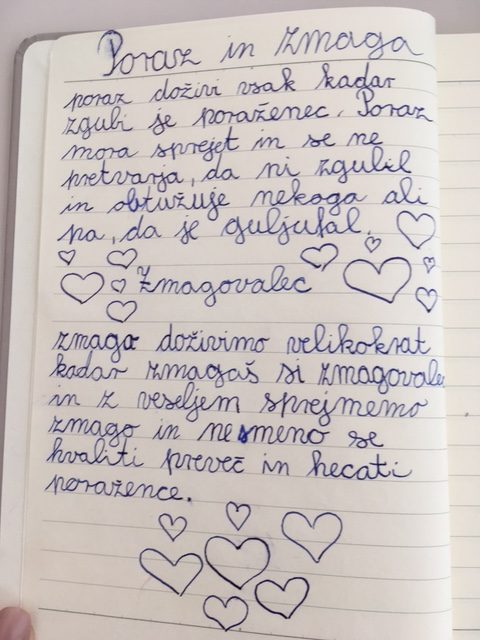 Poraz in zmaga
poraz doživi vsak kadar
zgubi je poraženec. Poraz
mora sprejet in se ne
pretvarja, da ni zgubil
in obtužuje nekoga ali
pa, da je guljufal.
Zmagovalec
zmaga doživimo velikokrat
kadar zmagaš si zmagovalec
in z veseljem sprejmemo
zmago in nesmeno se
hvaliti preveč in hecati
poražence.